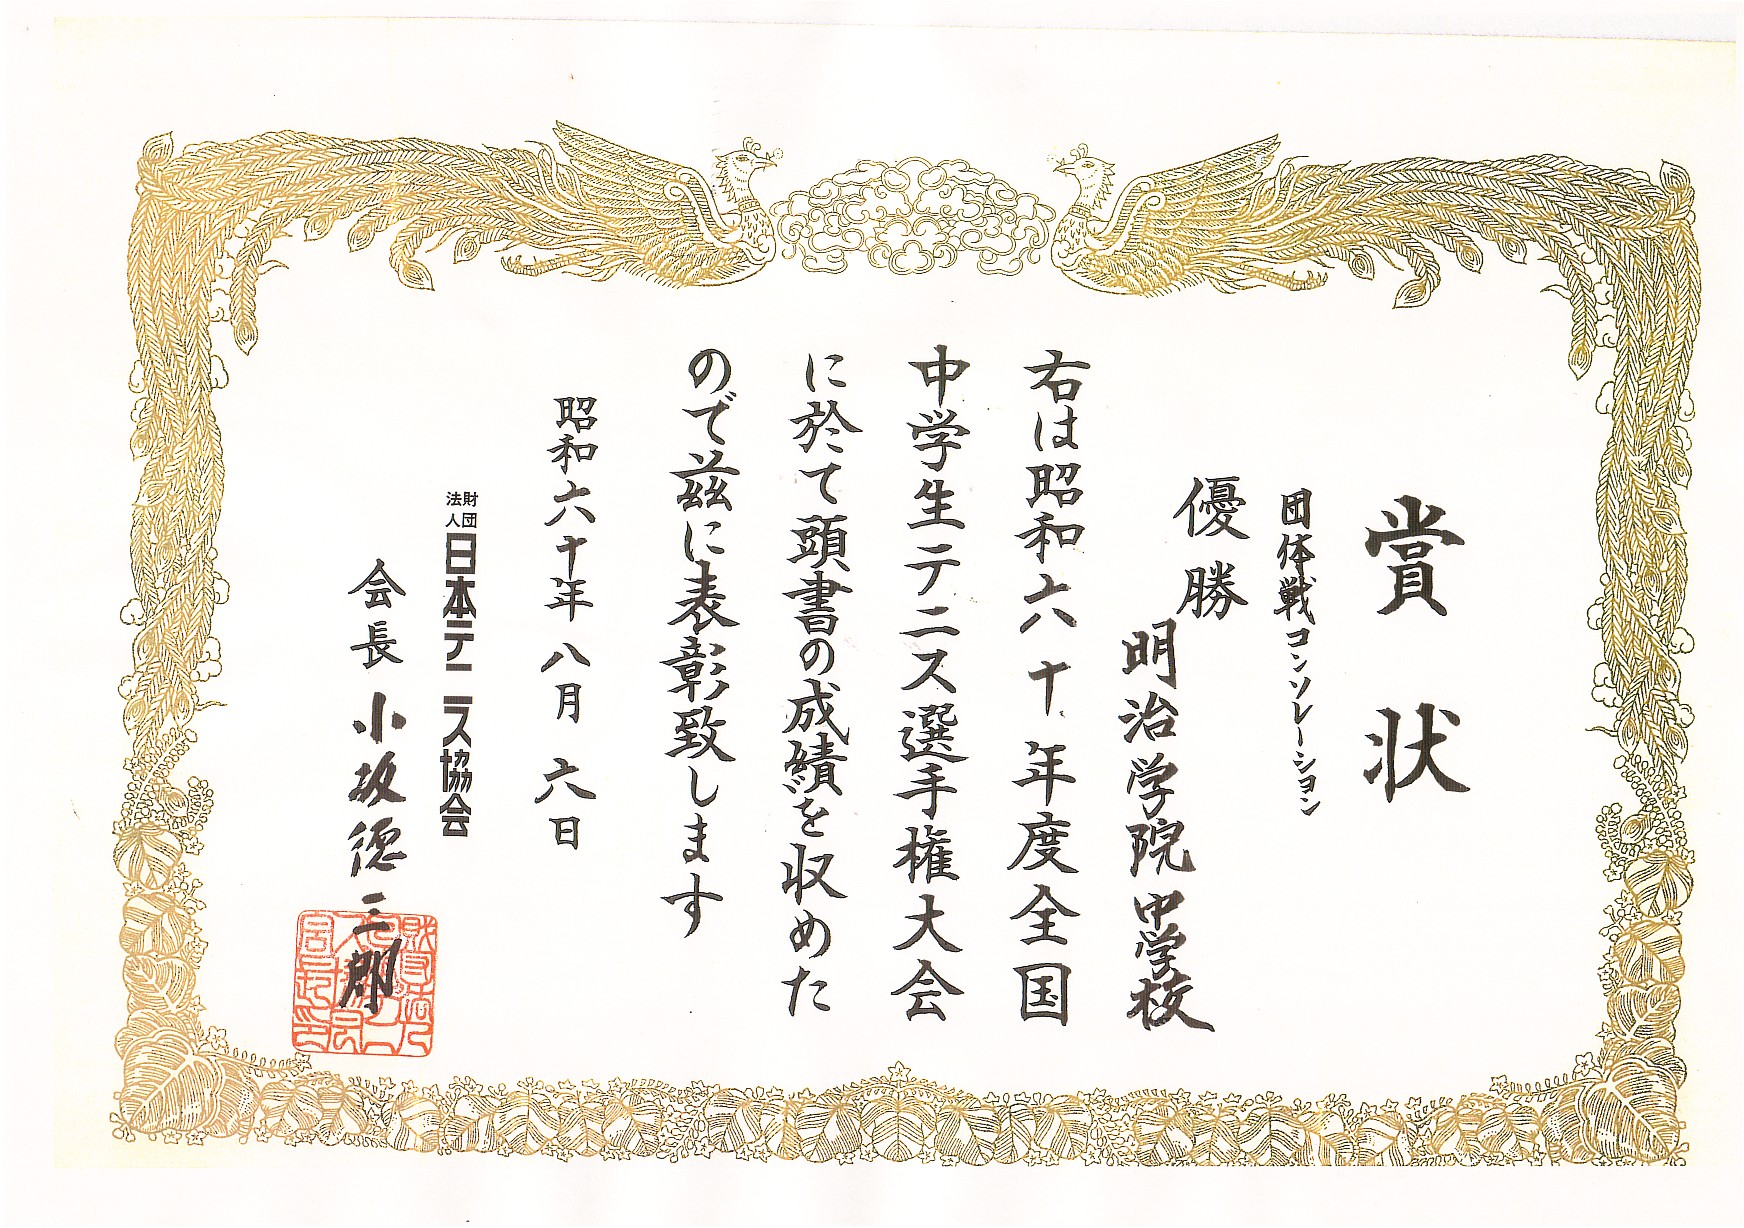 賞状
団体戦コンソレーション
優勝
明治学院中学校
右は昭和六十年度全国
中学生テニス選手権大会
に於て頭書の成績を収めた
ので茲に表彰致します
昭和六十年八月六日
財団法人日本テニス協会
会長 小坂徳三郎